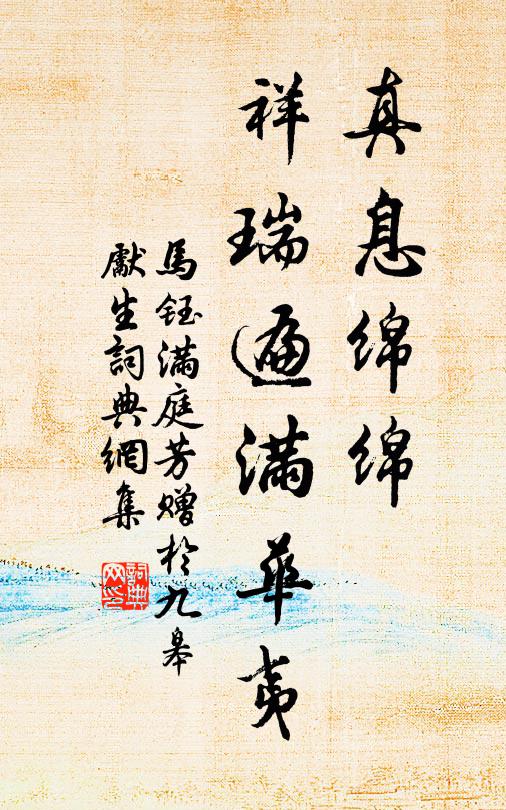 真息绵绵
祥瑞遍满華夷
馬鈺满庭芳赠於九皋
獻生詞典網集
詞典网印